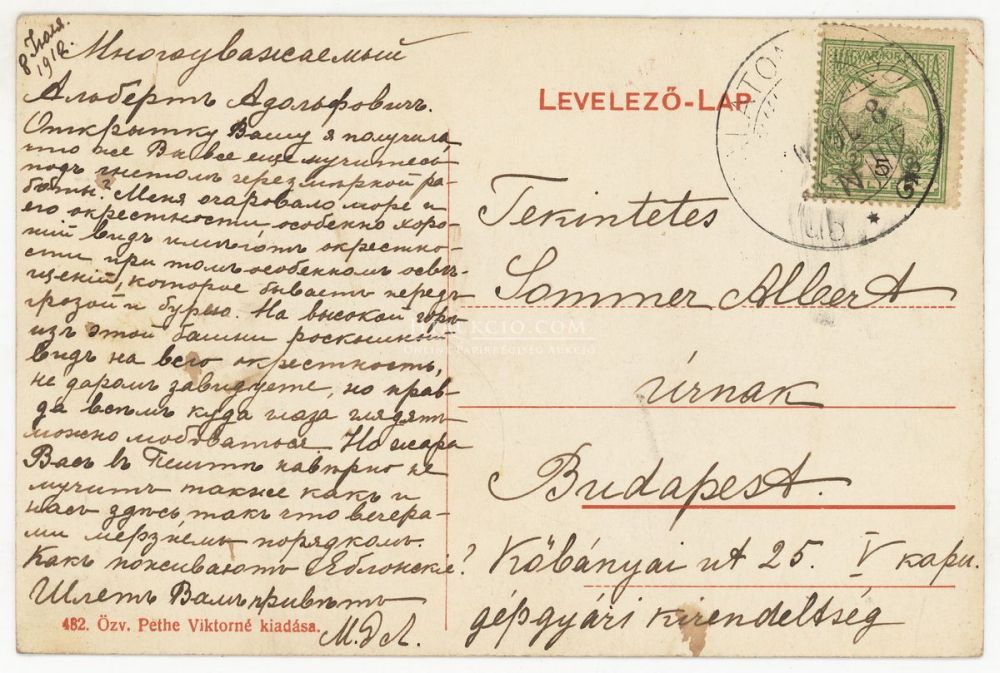 8 Іюля.
1912.
Многоуважаемый
Альбертъ Адольфовичъ.
Открытку Вашу я получила
что же Вы все еще мучитесь
подъ гнетомъ черезмѣрной ра-
боты? Меня очаровало море и
его окрестности, особенно хоро-
шій видъ имѣютъ окрестно-
сти при томъ особенномъ освѣ-
щеніи, которое бываетъ передъ
грозой и бурею. На высокой горѣ
изъ этой башни роскошный
видъ на всю окрестность,
не даромъ завидуете, но прав-
да всѣмъ куда глаза глядятъ
можно любоваться. Но жара
Васъ въ Пештѣ навѣрно не
мучитъ также какъ и
насъ здѣсь такъ что вечера-
ми мерзнемъ порядкомъ.
Какъ поживаютъ Яблонскіе?
Шлетъ Вамъ привѣтъ
М.Д.Л.
482. Özv. Pethe Viktorné kiadása.
LEVELEZŐ-LAP
MAGYAR KIR. POSTA
5
Tekintetes
Sommer Albert
úrnak
Budapest.
Kőbányai ut 25. V kapu.
gépgyári kirendeltség
ONLINE PAPÍRRÉGISÉG AUKCIÓ